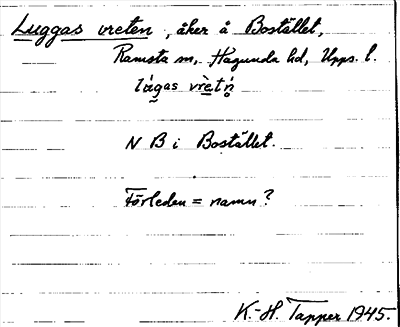 Luggas vreten, åker å Bostället,
Ramsta sn, Hagunda hd, Upps. l.
lúgas vrètṇ́
N B i Bostället.
Förleden = namn?
K.-H. Tapper 1945.